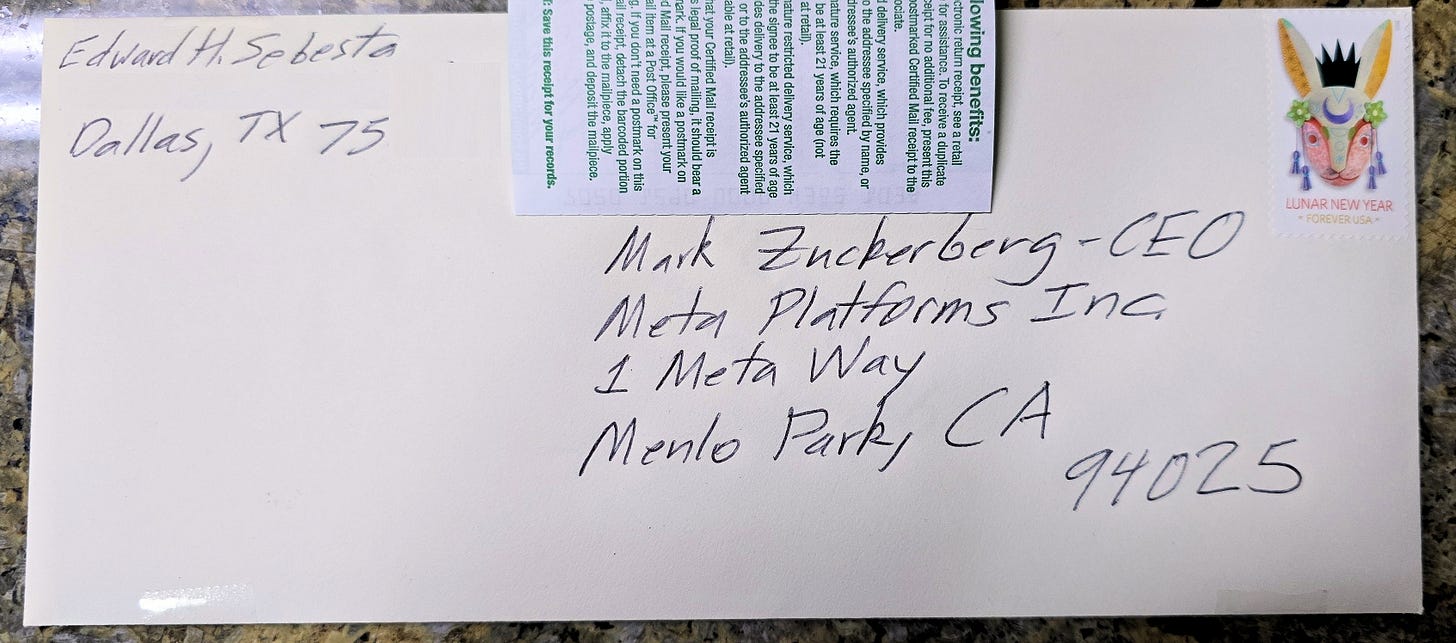 Edward H. Sebesta
Dallas, TX 75
llowing benefits:
ctronic return receipt, see a retail
for assistance. To receive a duplicate
eipt for no additional fee, present this
ostmarked Certified Mail receipt to the
ociate.
delivery service, which provides
o the addressee specified by name, or
dressee's authorized agent.
nature service, which requires the
be at least 21 years of age (not
at retail).
nature restricted delivery service, which
the signee to be at least 21 years of age
des delivery to the addressee specified
or to the addressee's authorized agent
able at retail).
hat your Certified Mail receipt is
s legal proof of mailing, it should bear a
mark. If you would like a postmark on
d Mail receipt, please present your
ail item at a Post Office™ for
g. If you don't need a postmark on this
ail receipt, detach the barcoded portion
, affix it to the mailpiece, apply
postage, and deposit the mailpiece.
: Save this receipt for your records.
LUNAR NEW YEAR
FOREVER USA
Mark Zuckerberg - CEO
Meta Platforms Inc.
1 Meta Way
Menlo Park, CA
94025